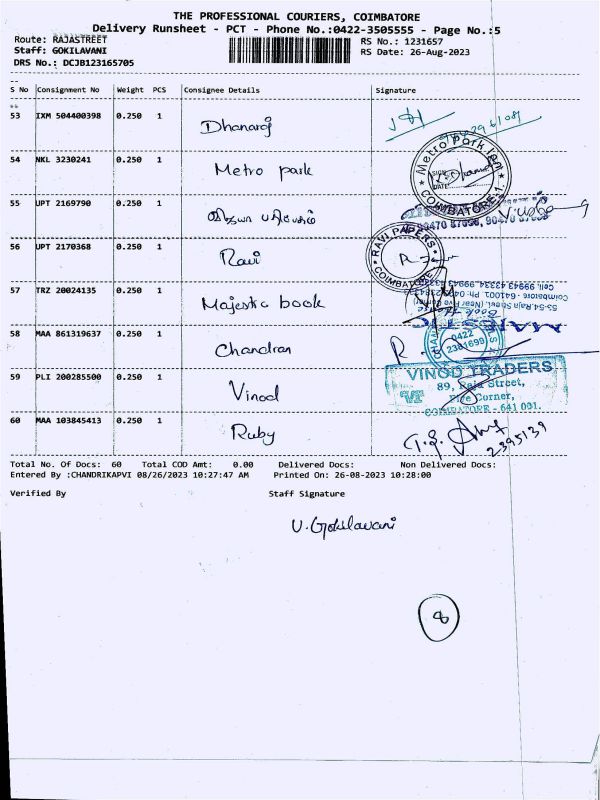 THE PROFESSIONAL COURIERS, COIMBATORE
Delivery Runsheet - PCT - Phone No.:0422-3505555 - Page No.:5
Route: RAJASTREET
RS No.: 1231657
Staff: GOKILAVANI
RS Date: 26-Aug-2023
DRS No.: DCJB123165705
S No Consignment No Weight PCS Consignee Details Signature
53 IXM 504400398 0.250 1 Dhanaraj
54 NKL 3230241 0.250 1 Metro park
Metro Park Inn
COIMBATORE-1.
55 UPT 2169790 0.250 1
56 UPT 2170368 0.250 1 Ravi
RAVI PAPERS
COIMBATORE
57 TRZ 20024135 0.250 1 Majestic book
MAJESTIC
58 MAA 861319637 0.250 1 Chandran
0422
2381699
59 PLI 200285500 0.250 1 Vinod
VINOD TRADERS
89, Raja Street,
Five Corner,
COIMBATORE - 641 001.
60 MAA 103845413 0.250 1 Ruby
2395139
Total No. Of Docs: 60 Total COD Amt: 0.00 Delivered Docs: Non Delivered Docs:
Entered By :CHANDRIKAPVI 08/26/2023 10:27:47 AM Printed On: 26-08-2023 10:28:00
Verified By Staff Signature
V. Gokilavani
8